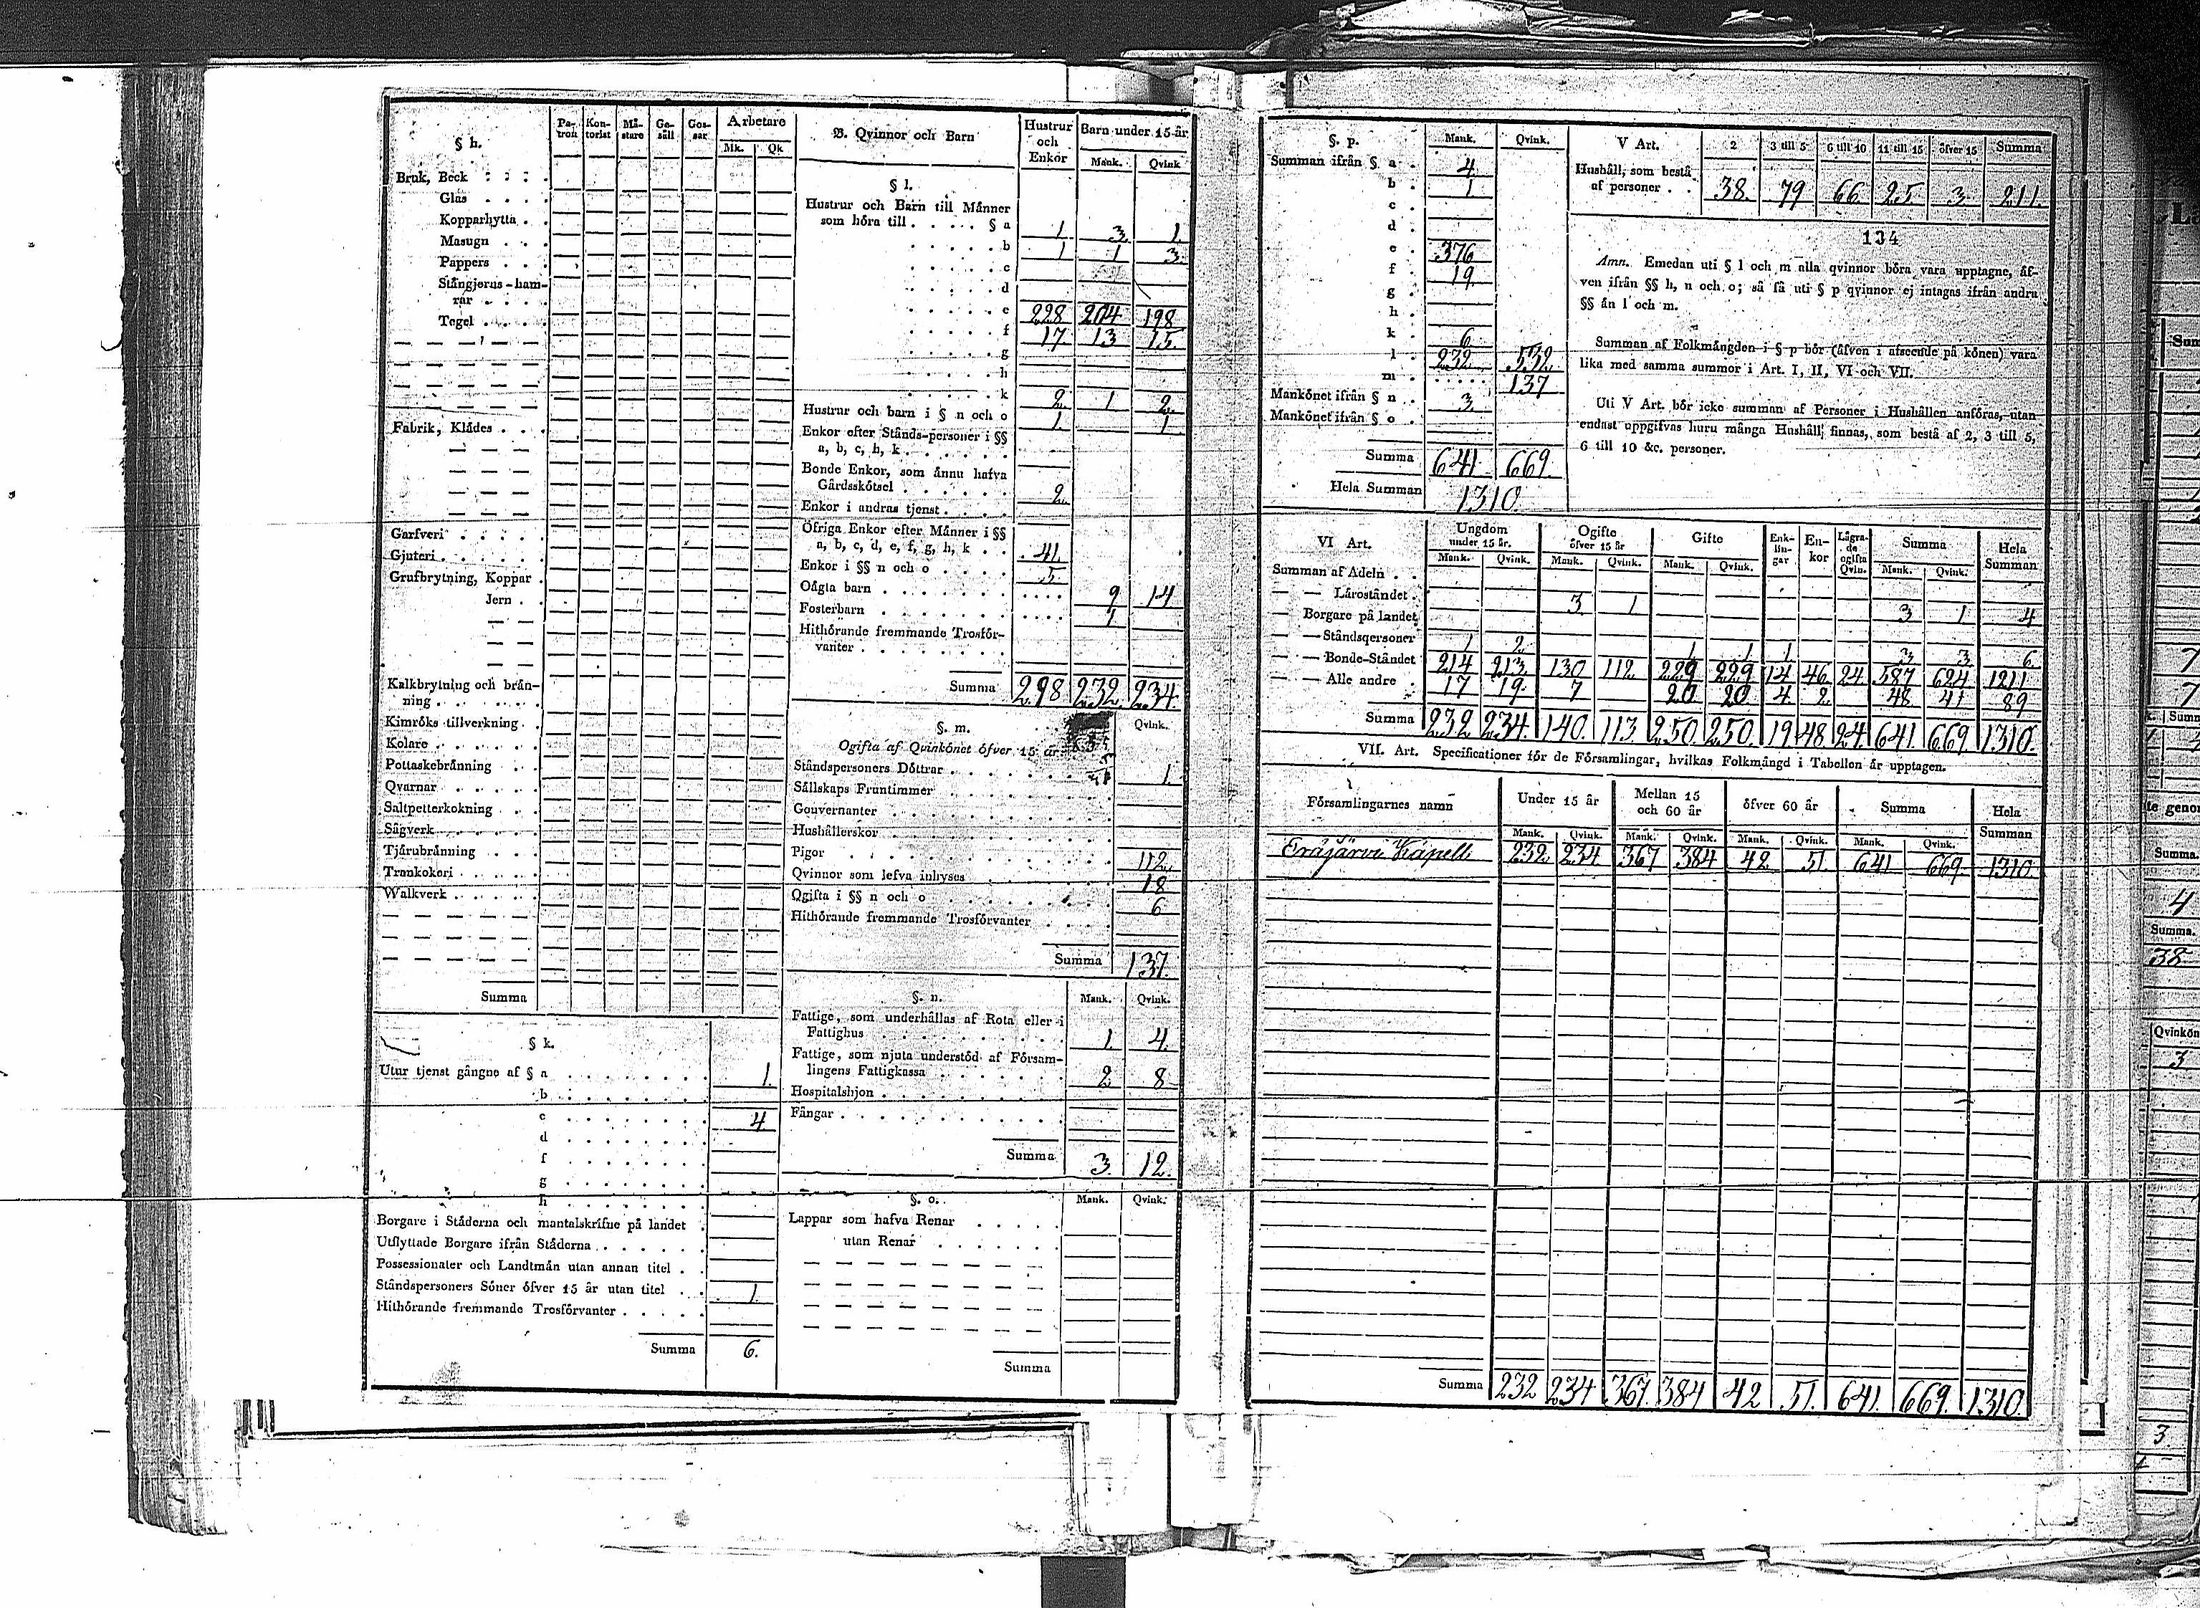 § h.
Pa-tron Kon-torist Mä-stare Ge-säll Gos-sar Arbetare
Mk. Qk
Bruk, Beck
Glas
Kopparhytta
Masugn
Pappers
Stångjerns-ham-
rar
Tegel
Fabrik, Klädes
Garfveri
Gjuteri
Grufbrytning, Koppar
Jern
Kalkbrytning och brän-
ning
Kimröks tillverkning
Kolare
Pottaskebränning
Qvarnar
Saltpetterkokning
Sågverk
Tjärubränning
Trankokeri
Walkverk
Summa
§ k.
Utur tjenst gångne af § a 1.
b
c 4
d
f
g
h
Borgare i Städerna och mantalskrifne på landet
Utflyttade Borgare ifrån Städerna
Possessionater och Landtmän utan annan titel
Ståndspersoners Söner öfver 15 år utan titel 1.
Hithörande fremmande Trosförvanter
Summa 6.
B. Qvinnor och Barn
Hustrur och Enkor Barn under 15 år
Mank. Qvink
§ l.
Hustrur och Barn till Männer
som höra till § a 1 3 1
b 1 1 3
c
d
e 228 204 198
f 17 13 15
g
h
k 2 1 2
Hustrur och barn i § n och o 1 1
Enkor efter Stånds-personer i §§
a, b, c, h, k
Bonde Enkor, som ännu hafva
Gårdsskötsel 2
Enkor i andras tjenst
Öfriga Enkor efter Männer i §§
a, b, c, d, e, f, g, h, k 41
Enkor i §§ n och o 5
Oägta barn 9 14
Fosterbarn 1
Hithörande fremmande Trosför-
vanter
Summa 298 232 234
§. m. Qvink.
Ogifta af Qvinkönet öfver 15 år
Ståndspersoners Döttrar 1.
Sällskaps Fruntimmer
Gouvernanter
Hushållerskor
Pigor 112
Qvinnor som lefva inhyses 18
Ogifta i §§ n och o 6
Hithörande fremmande Trosförvanter
Summa 137.
§. n. Mank. Qvink.
Fattige, som underhållas af Rota eller i
Fattighus 1. 4.
Fattige, som njuta understöd af Försam-
lingens Fattigkassa 2 8
Hospitalshjon
Fångar
Summa 3 12.
§. o. Mank. Qvink.
Lappar som hafva Renar
utan Renar
Summa
§. p. Mank. Qvink.
Summan ifrån § a 4
b 1.
c
d
e 376
f 19.
g
h
k 6
l 232 532
m 137
Mankönet ifrån § n 3.
Mankönet ifrån § o
Summa 641. 669.
Hela Summan 1310.
V Art. 2 3 till 5 6 till 10 11 till 15 öfver 15 Summa
Hushåll, som bestå
af personer 38. 79 66 25 3 211.
134
Anm. Emedan uti § l och m alla qvinnor böra vara upptagne, äf-
ven ifrån §§ h, n och o; så få uti § p qvinnor ej intagas ifrån andra
§§ än l och m.
Summan af Folkmängden i § p bör (äfven i afseende på könen) vara
lika med samma summor i Art. I, II, VI och VII.
Uti V Art. bör icke summan af Personer i Hushållen anföras, utan
endast uppgifvas huru många Hushåll finnas, som bestå af 2, 3 till 5,
6 till 10 &c. personer.
VI Art. Ungdom under 15 år. Ogifte öfver 15 år Gifte Enk-lin-gar En-kor Lägra-de ogifta Qvin. Summa Hela Summan
Mank. Qvink. Mank. Qvink. Mank. Qvink. Mank. Qvink.
Summan af Adeln
— — Läroståndet 3 1 3 1 4
— Borgare på landet
— — Ståndspersoner 1 2 1 1 1 3 3 6
— — Bonde-Ståndet 214 213 130 112 229 229 14 46 24 587 624 1211
— — Alle andre 17 19 7 20 20 4 2 48 41 89
Summa 232 234 140 113 250 250 19 48 24 641 669 1310.
VII. Art. Specificationer för de Församlingar, hvilkas Folkmängd i Tabellen är upptagen.
Församlingarnes namn Under 15 år Mellan 15 och 60 år öfver 60 år Summa Hela Summan
Mank. Qvink. Mank. Qvink. Mank. Qvink. Mank. Qvink.
Eräjärvi Kapell 232 234 367 384 42 51. 641 669. 1310.
Summa 232 234 367 384 42 51. 641. 669. 1310.
Summa.
4
Summa.
38
Qvinkön
3
3.